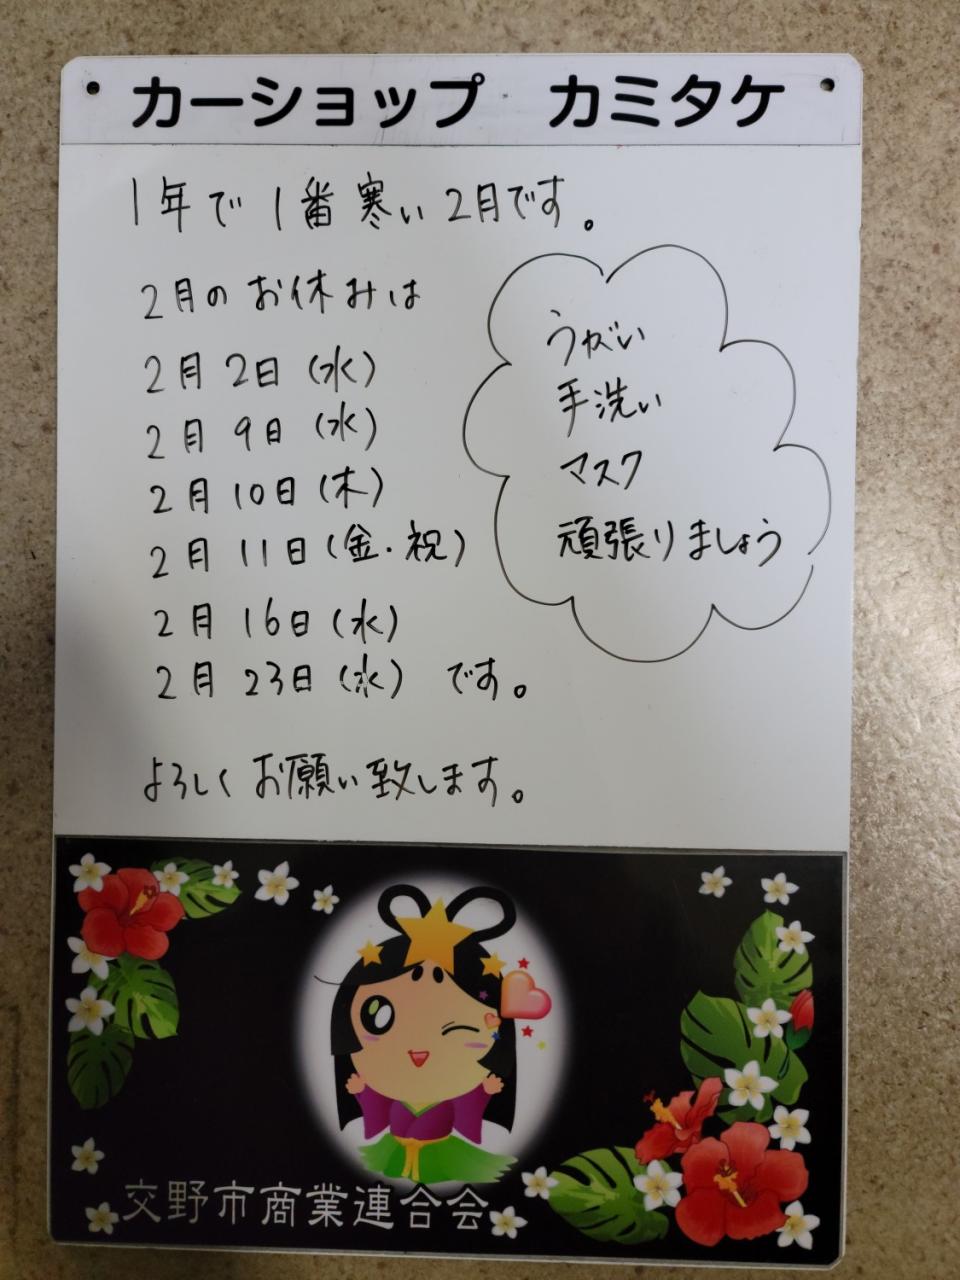 カーショップ カミタケ
1年で1番寒い2月です。
2月のお休みは
2月2日(水)
2月9日(水)
2月10日(木)
2月11日(金・祝)
2月16日(水)
2月23日(水) です。
よろしくお願い致します。
うがい
手洗い
マスク
頑張りましょう
交野市商業連合会